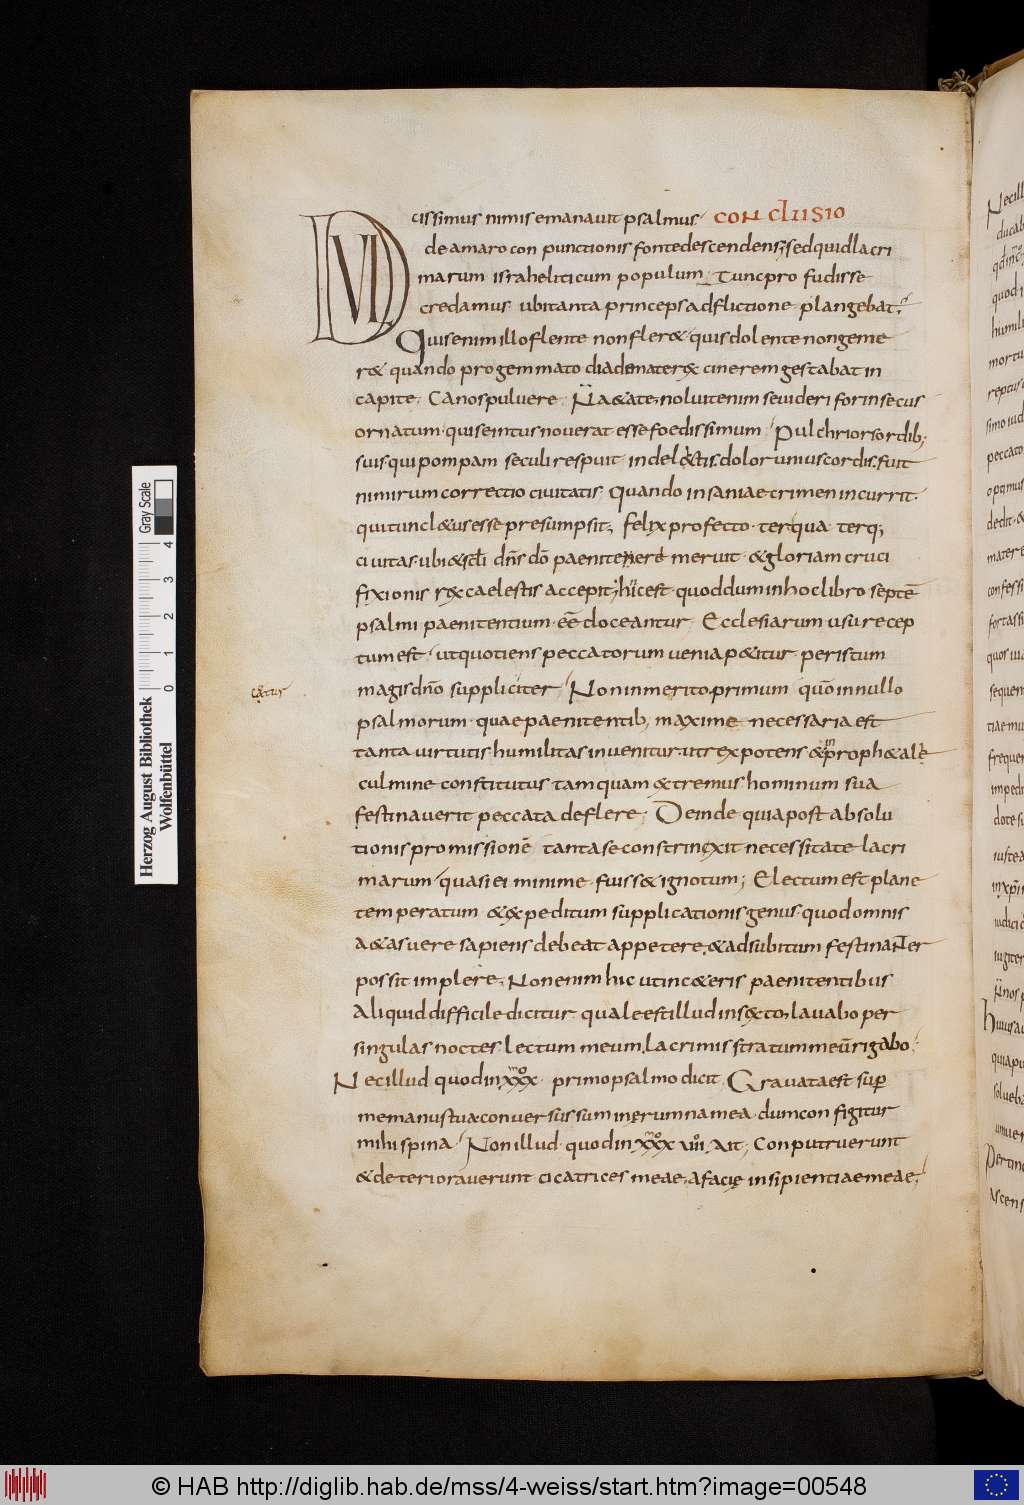 DVLcissimus nimis emanavit psalmus CONCLUSIO
de amaro conpunctionis fonte descendens; sed quid lacri
marum israheliticum populum; Tunc pro fudisse
credamus ubi tanta princeps adflictione plangebat;
Quis enim illo flente non fler& quis dolente non geme
r& quando pro gemmato diademate rex cinerem gestabat in
capite; Canos pulvere; N a&ate; noluit enim se videri forinsecus
ornatum qui se intus noverat esse foedissimum Pulchrior sordib;
suis qui pompam seculi respuit in delictis. dolor unius cordis. fuit
nimirum correctio civitatis. Quando insaniae crimen incurrit.
qui tunc l&us esse presumpsit; felix profecto terqua terq;
civitas ubi & scli dns do paenitere meruit & gloriam cruci
fixionis rex caelestis accepit; hic est quoddum in hoc libro septē
psalmi paenitentium eē doceantur Ecclesiarum usu recep
tum est ut quotiens peccatorum venia p&itur per istum
magis dno suppliciter Non inmerito primum quō in nullo
psalmorum quae paenitentib; maxime necessaria est
tanta virtutis humilitas invenitur ut rex potens & in proph&ale
culmine constitutus tamquam extremus hominum sua
festinaverit peccata deflere; Deinde quia post absolu
tionis promissionē tanta se constrinxit necessitate lacri
marum quasi ei minime fuiss& ignotum; Electum est plane
temperatum & expeditum supplicationis genus quod omnis
a&as vere sapiens debeat appetere, & ad subitum festinanter
possit implere; Non enim hic ut in c&eris paenitentibus
aliquid difficile dicitur quale est illud in sexto, lavabo per
singulas noctes lectum meum, lacrimis stratum meū rigabo;
Nec illud quod in xxxmo primo psalmo dicit Gravata est sup
me manus tua conversus sum in erumna mea dum configitur
mihi spina Non illud quod in xxxmo viio, Ait; Conputruerunt
& deterioraverunt cicatrices meae, a facie insipientiae meae;
Gray Scale
0 1 2 3 4
Herzog August Bibliothek
Wolfenbüttel
© HAB http://diglib.hab.de/mss/4-weiss/start.htm?image=00548